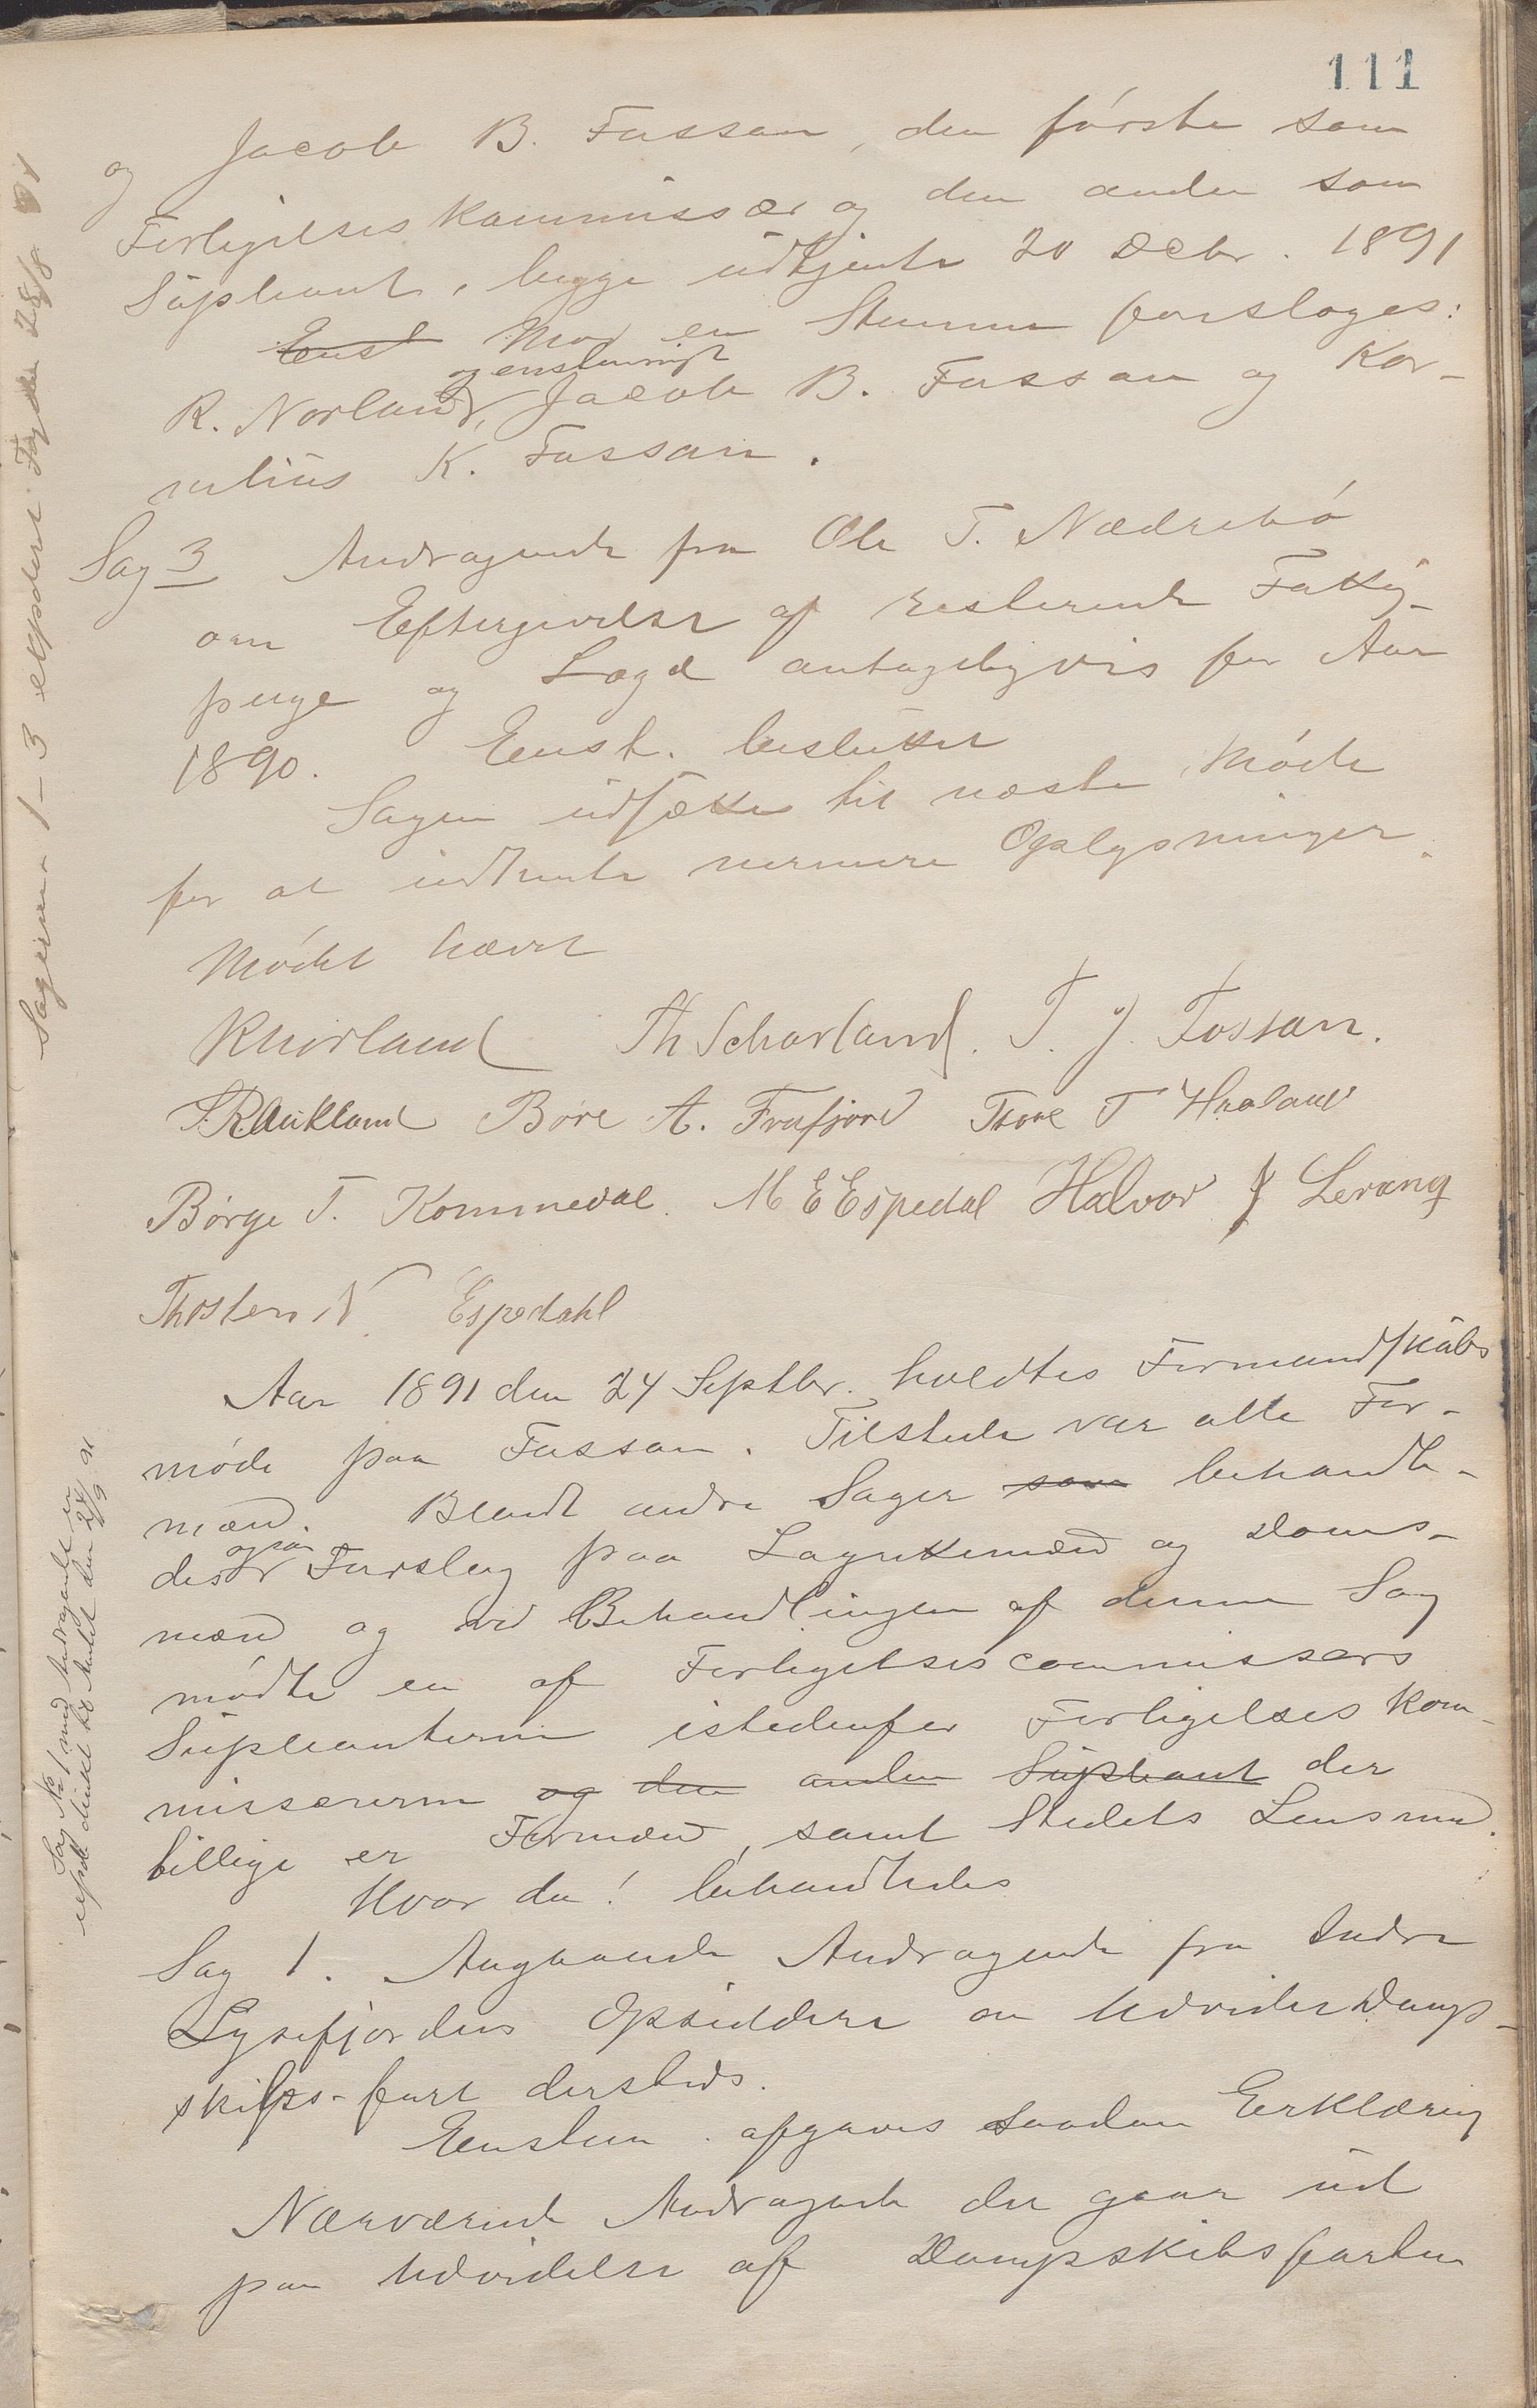 111
og Jacob B. Fossan, den første som
Forligelseskommissær og den anden som
Supleant, begge udtjente 20 Decbr. 1891
Enst Mod en Stemme foresloges:
og enstemmigt
R. Norland, Jacob B. Fossan og Kor-
nelius K. Fossan.
Sag 3 Andragende fra Ole T. Nedrebø
om Eftergivelse af resterende Fattig-
penge og Lægd antageligvis for Aar
1890. Enst. besluttet
Sagen udsættes til næste Møde
for at indhente nermere Oplysninger.
Mødet hævet
RNorland Th Scharland. T. J. Fossan.
T. R. Aukland Børe A. Frafjord Tore T Haaland
Børge T. Kommedal. M E Espedal Halvor J Lerang
Thosten N. Espedahl
Aar 1891 den 24 Septbr. holdtes Formandskabs
møde paa Fossan. Tilstede var alle For-
mænd. Blandt andre Sager som behandle-
des ogsaa Forslag paa Lagrettemænd og Doms-
mænd og ved Behandlingen af denne Sag
mødte en af Forligelsescommissærs
Supleanterne istedenfor Forligelses kom-
missærerne og den anden Supleant der
tillige er Formænd, samt Stedets Lensmd.
Hvor da! behandledes
Sag 1. Angaaende Andragende fra Indre
Lysefjordens Opsiddere om Udvidet Damp-
skibs-fart dersteds.
Enstem. afgaves saadan Eerklæring
Nærværende Andragende der gaar ud
paa Udvidelse af Dampskibsfarten
Sagerne 1-3 expderet Fogden 28/8 91
Sag No 1 med Andragende er
expd direkte til Amtet den 28/9 91